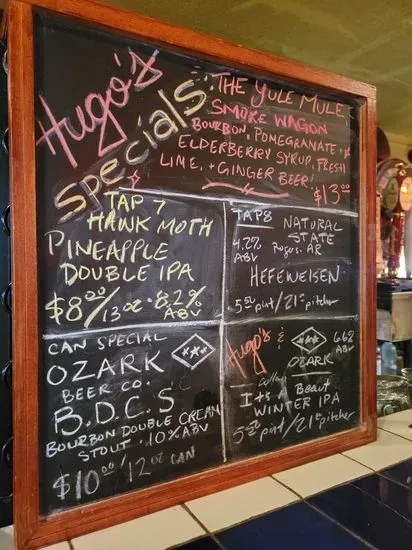 Hugo's
Specials:
THE YULE MULE
SMOKE WAGON
BOURBON, POMEGRANATE +
ELDERBERRY SYRUP, FRESH
LIME, + GINGER BEER!
$13.00
TAP 7
HAWK MOTH
PINEAPPLE
DOUBLE IPA
$8.00/13oz • 8.2%
ABV
TAP 8
4.2%
ABV
NATURAL
STATE
Rogers, AR
HEFEWEISEN
5.50 pint/21.00 pitcher
CAN SPECIAL
OZARK
BEER CO.
B.D.C.S
BOURBON DOUBLE CREAM
STOUT • 10% ABV
$10.00/12oz CAN
Hugo's &
OZARK
6.6%
ABV
Collab
It's A Beaut
WINTER IPA
5.50 pint/21.00 pitcher